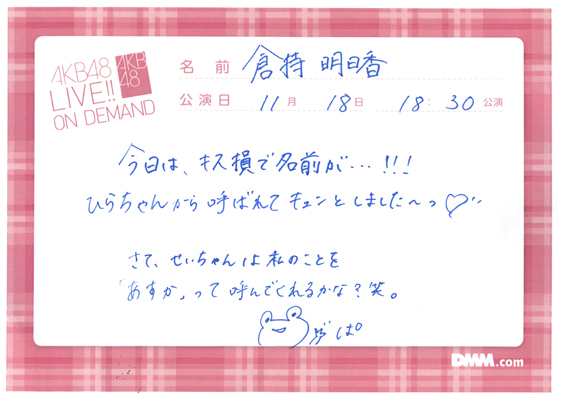 AKB48
LIVE!!
ON DEMAND
AKB
48
名 前 倉持 明日香
公演日 11月 18日 18:30 公演
今日は、キス損で名前が…!!!
ひらちゃんから呼ばれてキュンとしました〜っ♡
さて、せいちゃんは私のことを
「あすか」って呼んでくれるかな?笑。
DMM.com